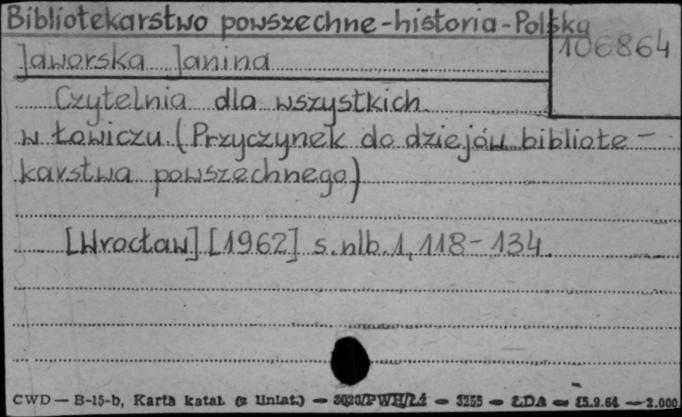 Bibliotekarstwo powszechne-historia-Polska
106864
Jaworska Janina
Czytelnia dla wszystkich
w Łowiczu. (Przyczynek do dziejów bibliote-
karstwa powszechnego)
[Wrocław] [1962] s. nlb. 1, 118-134.
CWD — B-15-b, Karta katal. (z liniat.) — 3020/PWH/Łź — 3255 — ŁDA — 15.9.64 — 2.000